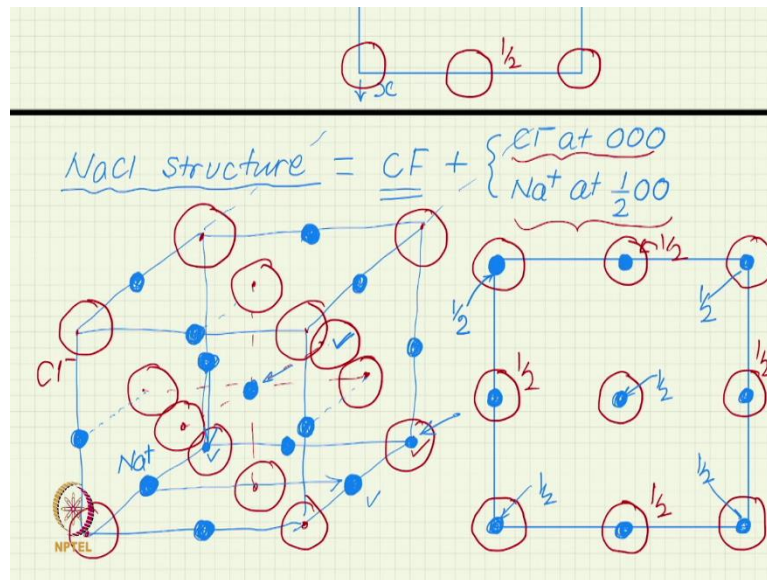 1/2
x
NaCl structure = CF + { Cl⁻ at 000
Na⁺ at 1/2 00
1/2
1/2
1/2
Cl⁻
1/2
1/2
1/2
Na⁺
1/2
1/2
1/2
NPTEL